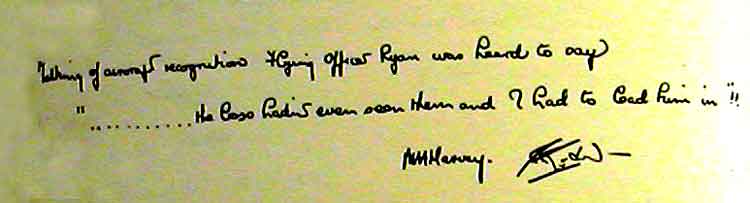 Talking of aircraft recognition Flying Officer Ryan was heard to say
".......... He Boso hadn't even seen them and I had to lead him in"!!
MHarvey.